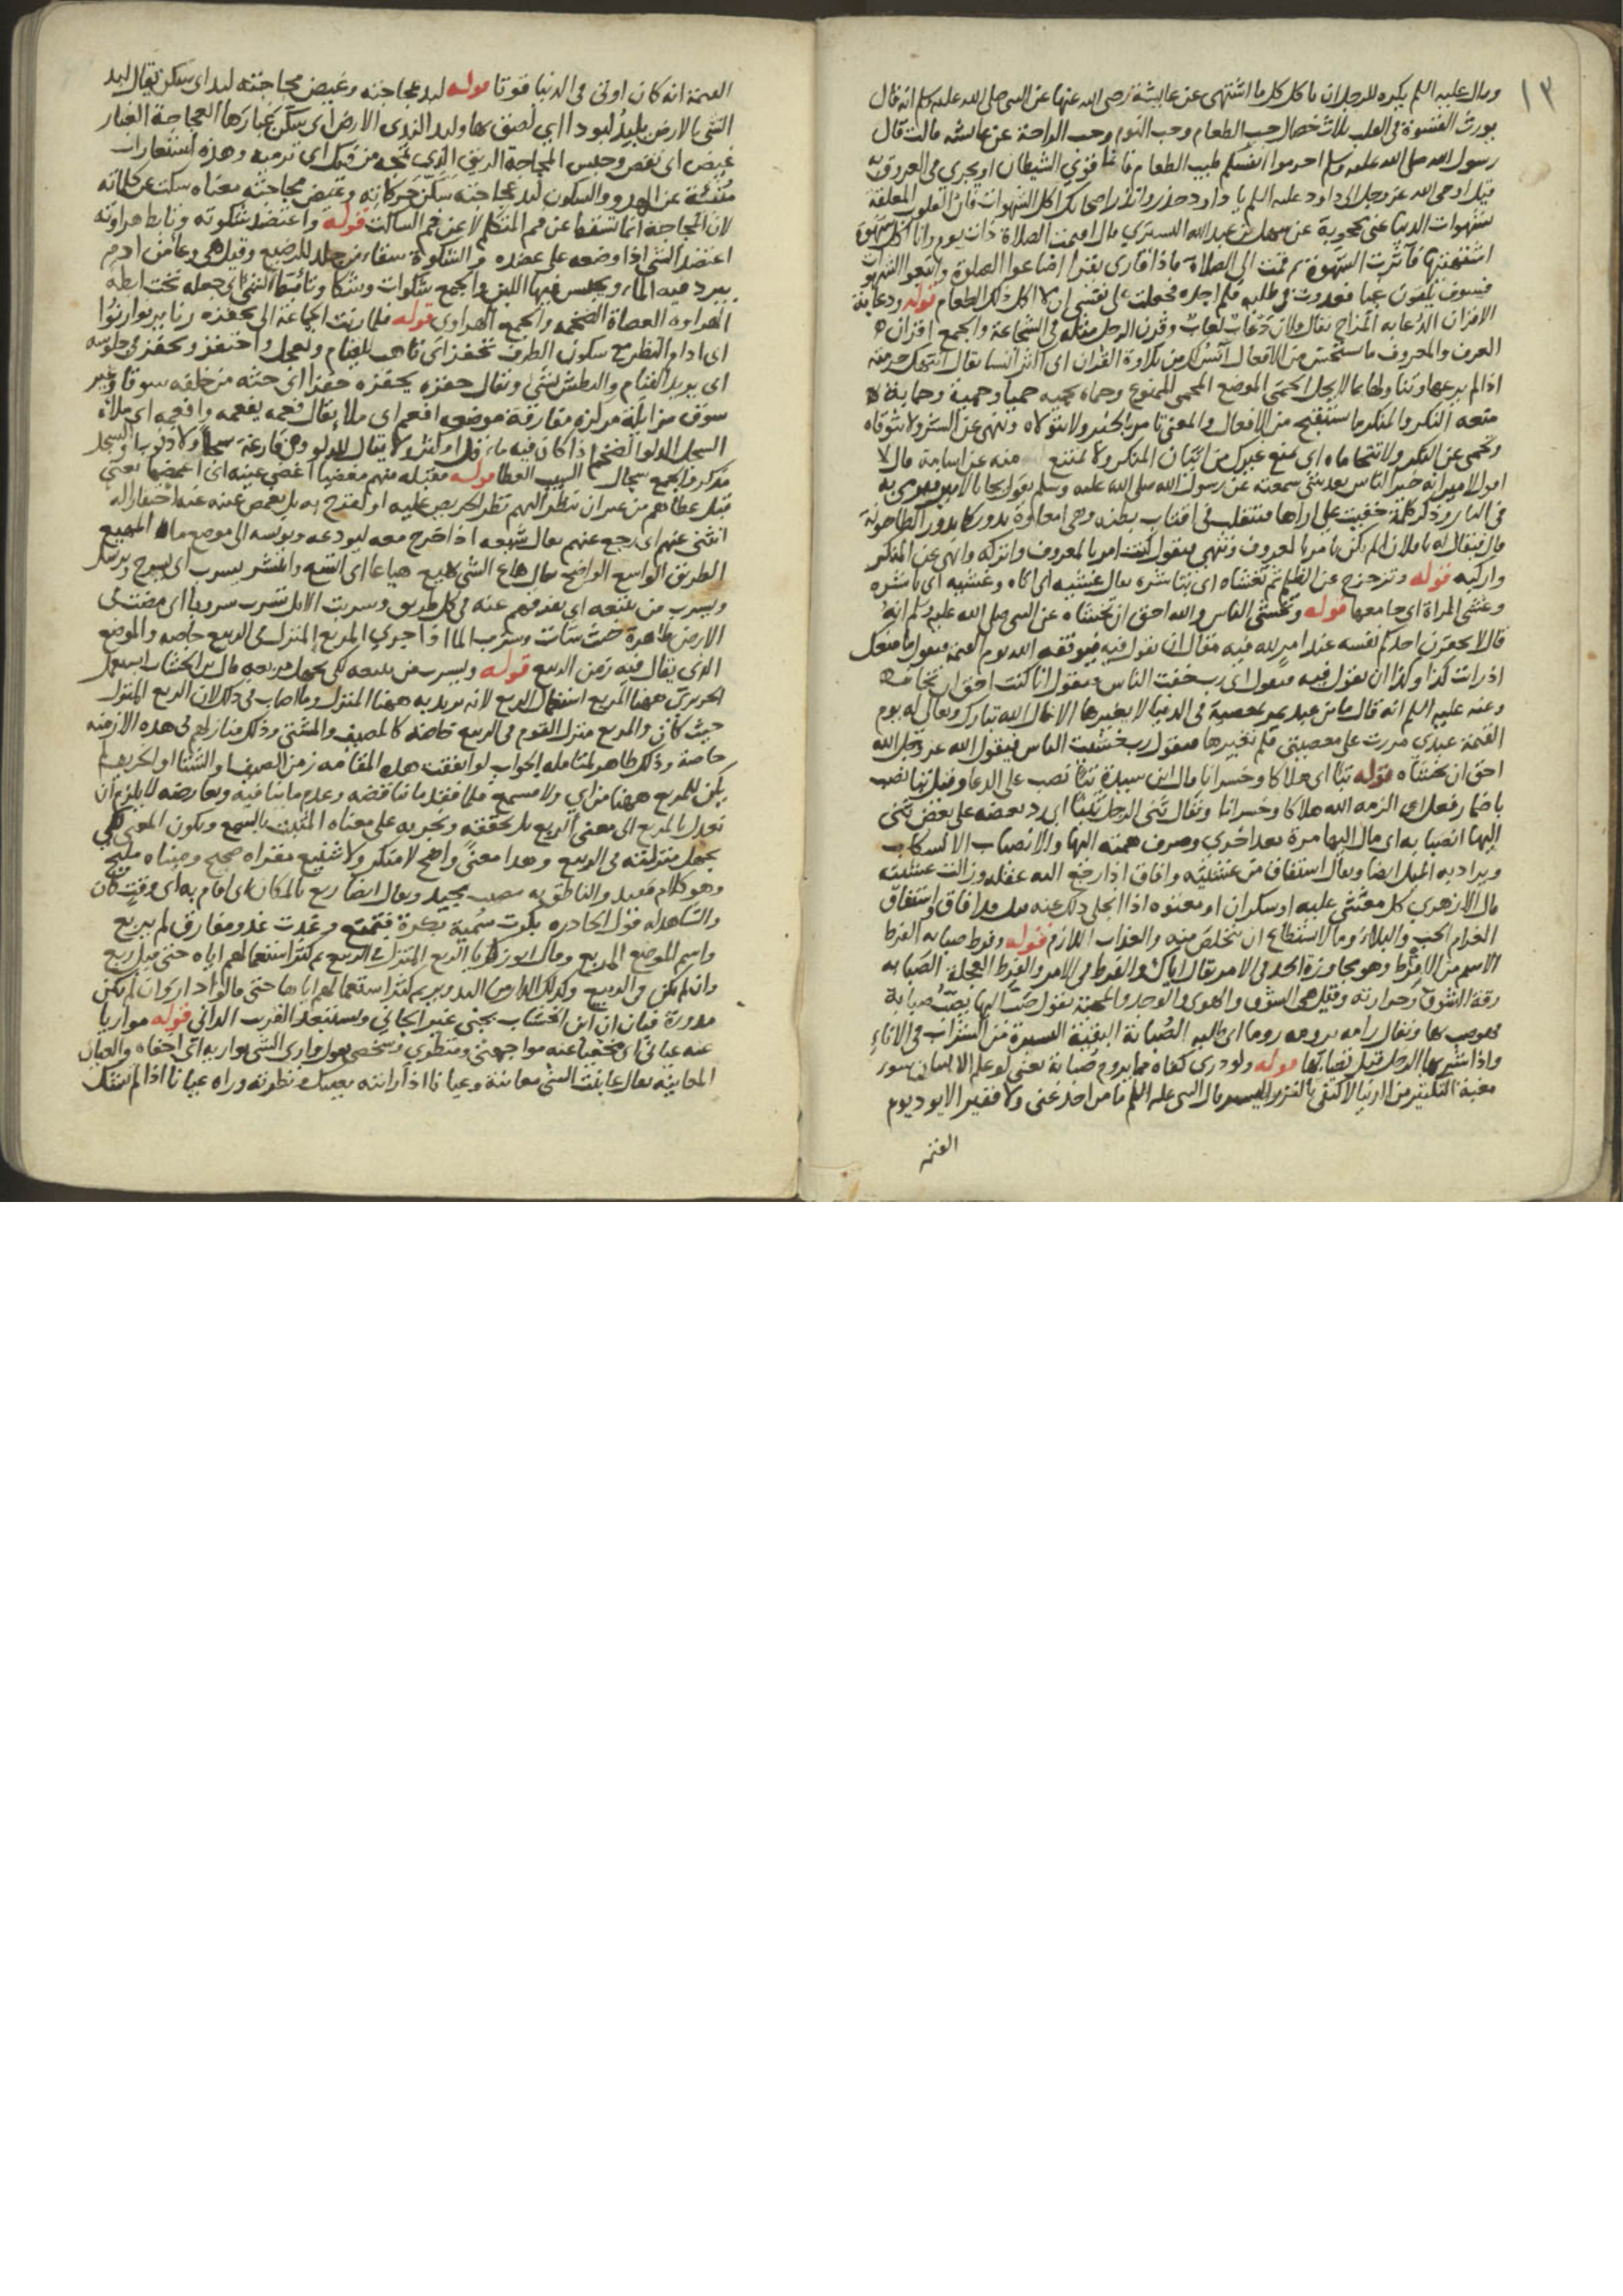 ١٣
وقال عليه السلم يكره للرجل ان ياكل كل ما اشتهى عن عايشة رضى الله عنها عن النبى صلى الله عليه وسلم انه قال
يورث القسوة فى القلب ثلاث خصال حب الطعام وحب النوم وحب الراحة عن عائشه قالت قال
رسول الله صلى الله عليه وسلم احرموا انفسكم طيب الطعام فانما قوي الشيطان ان يجري فى العروق به
قيل اوحى الله عز وجل الى داود عليه السلم يا داود حذر وانذر اصحابك اكل الشهوات فان القلوب المعلقة
بشهوات الدنيا عنى محجوبة عن سهل بن عبد الله التستري قال اقيمت الصلاة ذات يوم وانا اكل شهوة
اشتهيتها فآثرت الشهوة ثم قمت الى الصلاة فاذا قارى يقرا اضاعوا الصلوة واتبعوا الشهوات
فسوف يلقون غيا فعدوت فى طلبه فلم اجده فجعلت على نفسى ان لا اكل ذلك الطعام قوله ودعابة
الاقران الدعابه المزاح يقال فلان دعاب لعاب وقرن الرجل مثله فى الشجاعة والجمع اقران
العرف والمعروف ما يستحسن من الافعال آنس اكثر من تلاوة القران اى اكثر انسا يقال انتهك حرمته
اذا لم يرعها وتناولها بما لا يحل الحمى الموضع المحمى الممنوع وحماه يحميه حميا وحمية وحماية
منعه النكر والمنكر ما يستقبح من الافعال والمعنى تامر بالخير ولا تتولاه وتنهى عن الشر ولا تتوقاه
وتحمى عن النكر ولا تتحاماه اى تمنع غيرك من اتيان المنكر ولا تمتنع منه عن اسامة قال لا
اقول لامير انه خير الناس بعد شى سمعته عن رسول الله صلى الله عليه وسلم يقول يجا بالامير فيرمى به
فى النار وذكر كلمة خفيت على اراها فتنقلب فى اقتاب بطنه وهى امعاوه يدور كما يدور الطاحونة
قال فيقال له يا فلان الم تكن تامر بالمعروف وتنهى فيقول كنت امر بالمعروف واتركه وانهى عن المنكر
واركبه قوله وتزحزح عن الظلم ثم تغشاه اى تباشره يقال غشيه اى اتاه وغشيه اى باشره
وغشى المراة اى جامعها قوله وتخشى الناس والله احق ان تخشاه عن النبى صلى الله عليه وسلم انه
قال لا يحقرن احدكم نفسه عند امر لله فيه مقال ان يقول فيه فيوقفه الله يوم القيمة فيقول ما منعك
اذ رايت كذا وكذا ان تقول فيه فيقول اى رب خفت الناس فيقول انا كنت احق ان تخافه
وعنه عليه السلم انه قال ما من عبد يمر بمعصية فى الدنيا لا يغيرها الا قال الله تبارك وتعالى له يوم
القيمة عبدي مررت على معصيتى فلم تغيرها فيقول رب خشيت الناس فيقول الله عز وجل الله
احق ان تخشاه قوله تبا اى هلاكا وخسرانا قال ابن سيدة تبا نصب على الدعا وقيل تبا نصب
باضمار فعل اى الزمه الله هلاكا وخسرانا ويقال ثنى الرجل ثنيا اى رد بعضه على بعض ثنى
اليها انصبابه اى مال اليها مرة بعد اخري وصرف همته اليها والانصباب الانسكاب
ويراد به الميل ايضا ويقال استفاق من غشيته وافاق اذا رجع اليه عقله وزالت غشيته
قال الازهري كل مغشى عليه او سكران او معتوه اذا انجلى ذلك عنه قيل قد افاق واستفاق
الغرام الحب والبلاء وما لا استطاع ان يتخلص منه والعذاب اللازم قوله وفرط صبابه الفرط
الاسم من الافراط وهو مجاوزة الحد فى الامر يقال اياك والفرط فى الامر والفرط العجلة الصبابه
رقة الشوق وحرارته وقيل هى الشوق والهوى والوجد والمحبة تقول صب اليها يصب صبابة
فهو صب بها ويقال رامه يرومه روما اى طلبه الصبابة البقية اليسيرة من الشراب فى الاناء
واذا شربها الرجل قيل تصابها قوله ولو دري لكفاه مما يروم صبابة يعنى لو علم الانسان سور
مغبة التكثير من الدنيا لاكتفى بالنزر اليسير قال النبى عليه السلم ما من احد غنى ولا فقير الا يود يوم
القيمة
القيمة انه كان اوتى فى الدنيا قوتا قوله لبد عجاجته وغيض مجاجته لبد اى سكن يقال لبد
الشى بالارض يلبد لبودا اى لصق بها ولبد الندى الارض اى سكن غبارها العجاجة الغبار
غيض اى نقص وحبس المجاجة الريق الذى تمجه من فمك اى ترميه وهذه استعارات
منبئة عن الهدو والسكون لبد عجاجته سكن حركاته وغيض مجاجته معناه سكت عن كلماته
لان المجاجة انما تشفها عن فم المتكلم لا عن فم الساكت قوله واعتضد شكوته وتابط هراوته
اعتضد الشى اذا وضعه على عضده والشكوة سقاء من جلد للرضيع وقيل هى وعا من ادم
يبرد فيه الماء ويحبس فيها اللبن والجمع شكوات وشكا وتابط الشى اى جعله تحت ابطه
الهراوه العصاة الضخمه والجمع الهراوى قوله فلما رنت الجماعة الى تحفزه رنا يرنو ارنوا
اى ادام النظر مع سكون الطرف تحفز اى تاهب للقيام وتعجل واحتفز وتحفز فى جلوسه
اى يريد القيام والبطش بشئ ويقال حفزه يحفزه حفزا اى حثه من خلفه سوقا وغير
سوق مزايلة مركزه مفارقة موضعه افعم اى ملا يقال فعمه يفعمه وافعمه اى ملاه
السجل الدلو الضخم اذا كان فيه ماء قل او كثر ولا يقال للدلو وهى فارغة سجلا ولا ذنوبا والسجل
مذكر والجمع سجال السيب العطا قوله فقبله منهم مغضيا اغضى عينه اى اغمضها يعنى
قبل عطاهم من غير ان ينظر اليهم نظر الحريص عليه او يفتح به بل يغمض عينه عنه احتقارا له
انثنى عنهم اى رجع عنهم يقال شيعه اذا خرج معه ليودعه ويونسه الى موضع ما المهيع
الطريق الواسع الواضح يقال هاع الشى يهيع هياعا اى اتسع وانتشر يسرب اى يسرح ويرسل
ويسرب من يتبعه اى يفرقهم عنه فى كل طريق وسربت الابل تسرب سروبا اى مضت فى
الارض ظاهرة حيث شات وسرب الما اذا جري المربع المنزل فى الربيع خاصه والموضع
الذى يقال فيه زمن الربيع قوله ويسرب من يتبعه لكى يجهل مربعه قال ابن الخشاب استعمل
الحريرى ههنا المربع استعمال الربع لانه يريد به ههنا المنزل وما اصاب فى ذلك لان الربع المنزل
حيث كان والمربع منزل القوم فى الربيع خاصة كالمصيف والمشتى وذلك منازلهم فى هذه الازمنه
خاصة وذلك ظاهر لمتامله الجواب لو اتفقت هذه المقامه زمن الصيف او الشتا او الخريف لم
يكن للمربع ههنا من راي ولا مسمع فلما فقد ما يناقضه وعدم ما ينافيه ويعارضه لا يلزم ان
نعدل بالمربع الى معنى الربع بل نحققه ونجريه على معناه المثبت بالسمع ويكون المعنى لكى
يجهل منزلته فى الربيع وهذا معنى واضح لا منكر ولا شنيع مغزاه صحيح ومبناه مليح
وهو كلام مفيد والناطق به مصيب مجيد ويقال ايضا ربع بالمكان اى اقام به اى وقت كان
والشاهد له قول الحادره بكرت سمية بكرة فتمتع وغدت غدو مفارق لم يربع
واسم الموضع المربع وقال ابو زكريا الربع المنزل فى الربيع ثم كثر استعمالهم اياه حتى قيل ربع
وان لم يكن فى الربيع وكذلك الدار من التدوير ثم كثر استعمالهم اياها حتى قالوا دار وان لم تكن
مدورة فبان ان ابن الخشاب يجنى غير الجاني ويستبعد القرب الدانى قوله مواريا
عنه عيانى اى مخفيا عنه مواجهتى ومنظري وشخصى يقال واري الشى يواريه اى اخفاه والعيان
المعاينه يقال عاينت الشى معاينة وعيانا اذا رايته بعينك ونظرته وراه عيانا اذا لم يشك